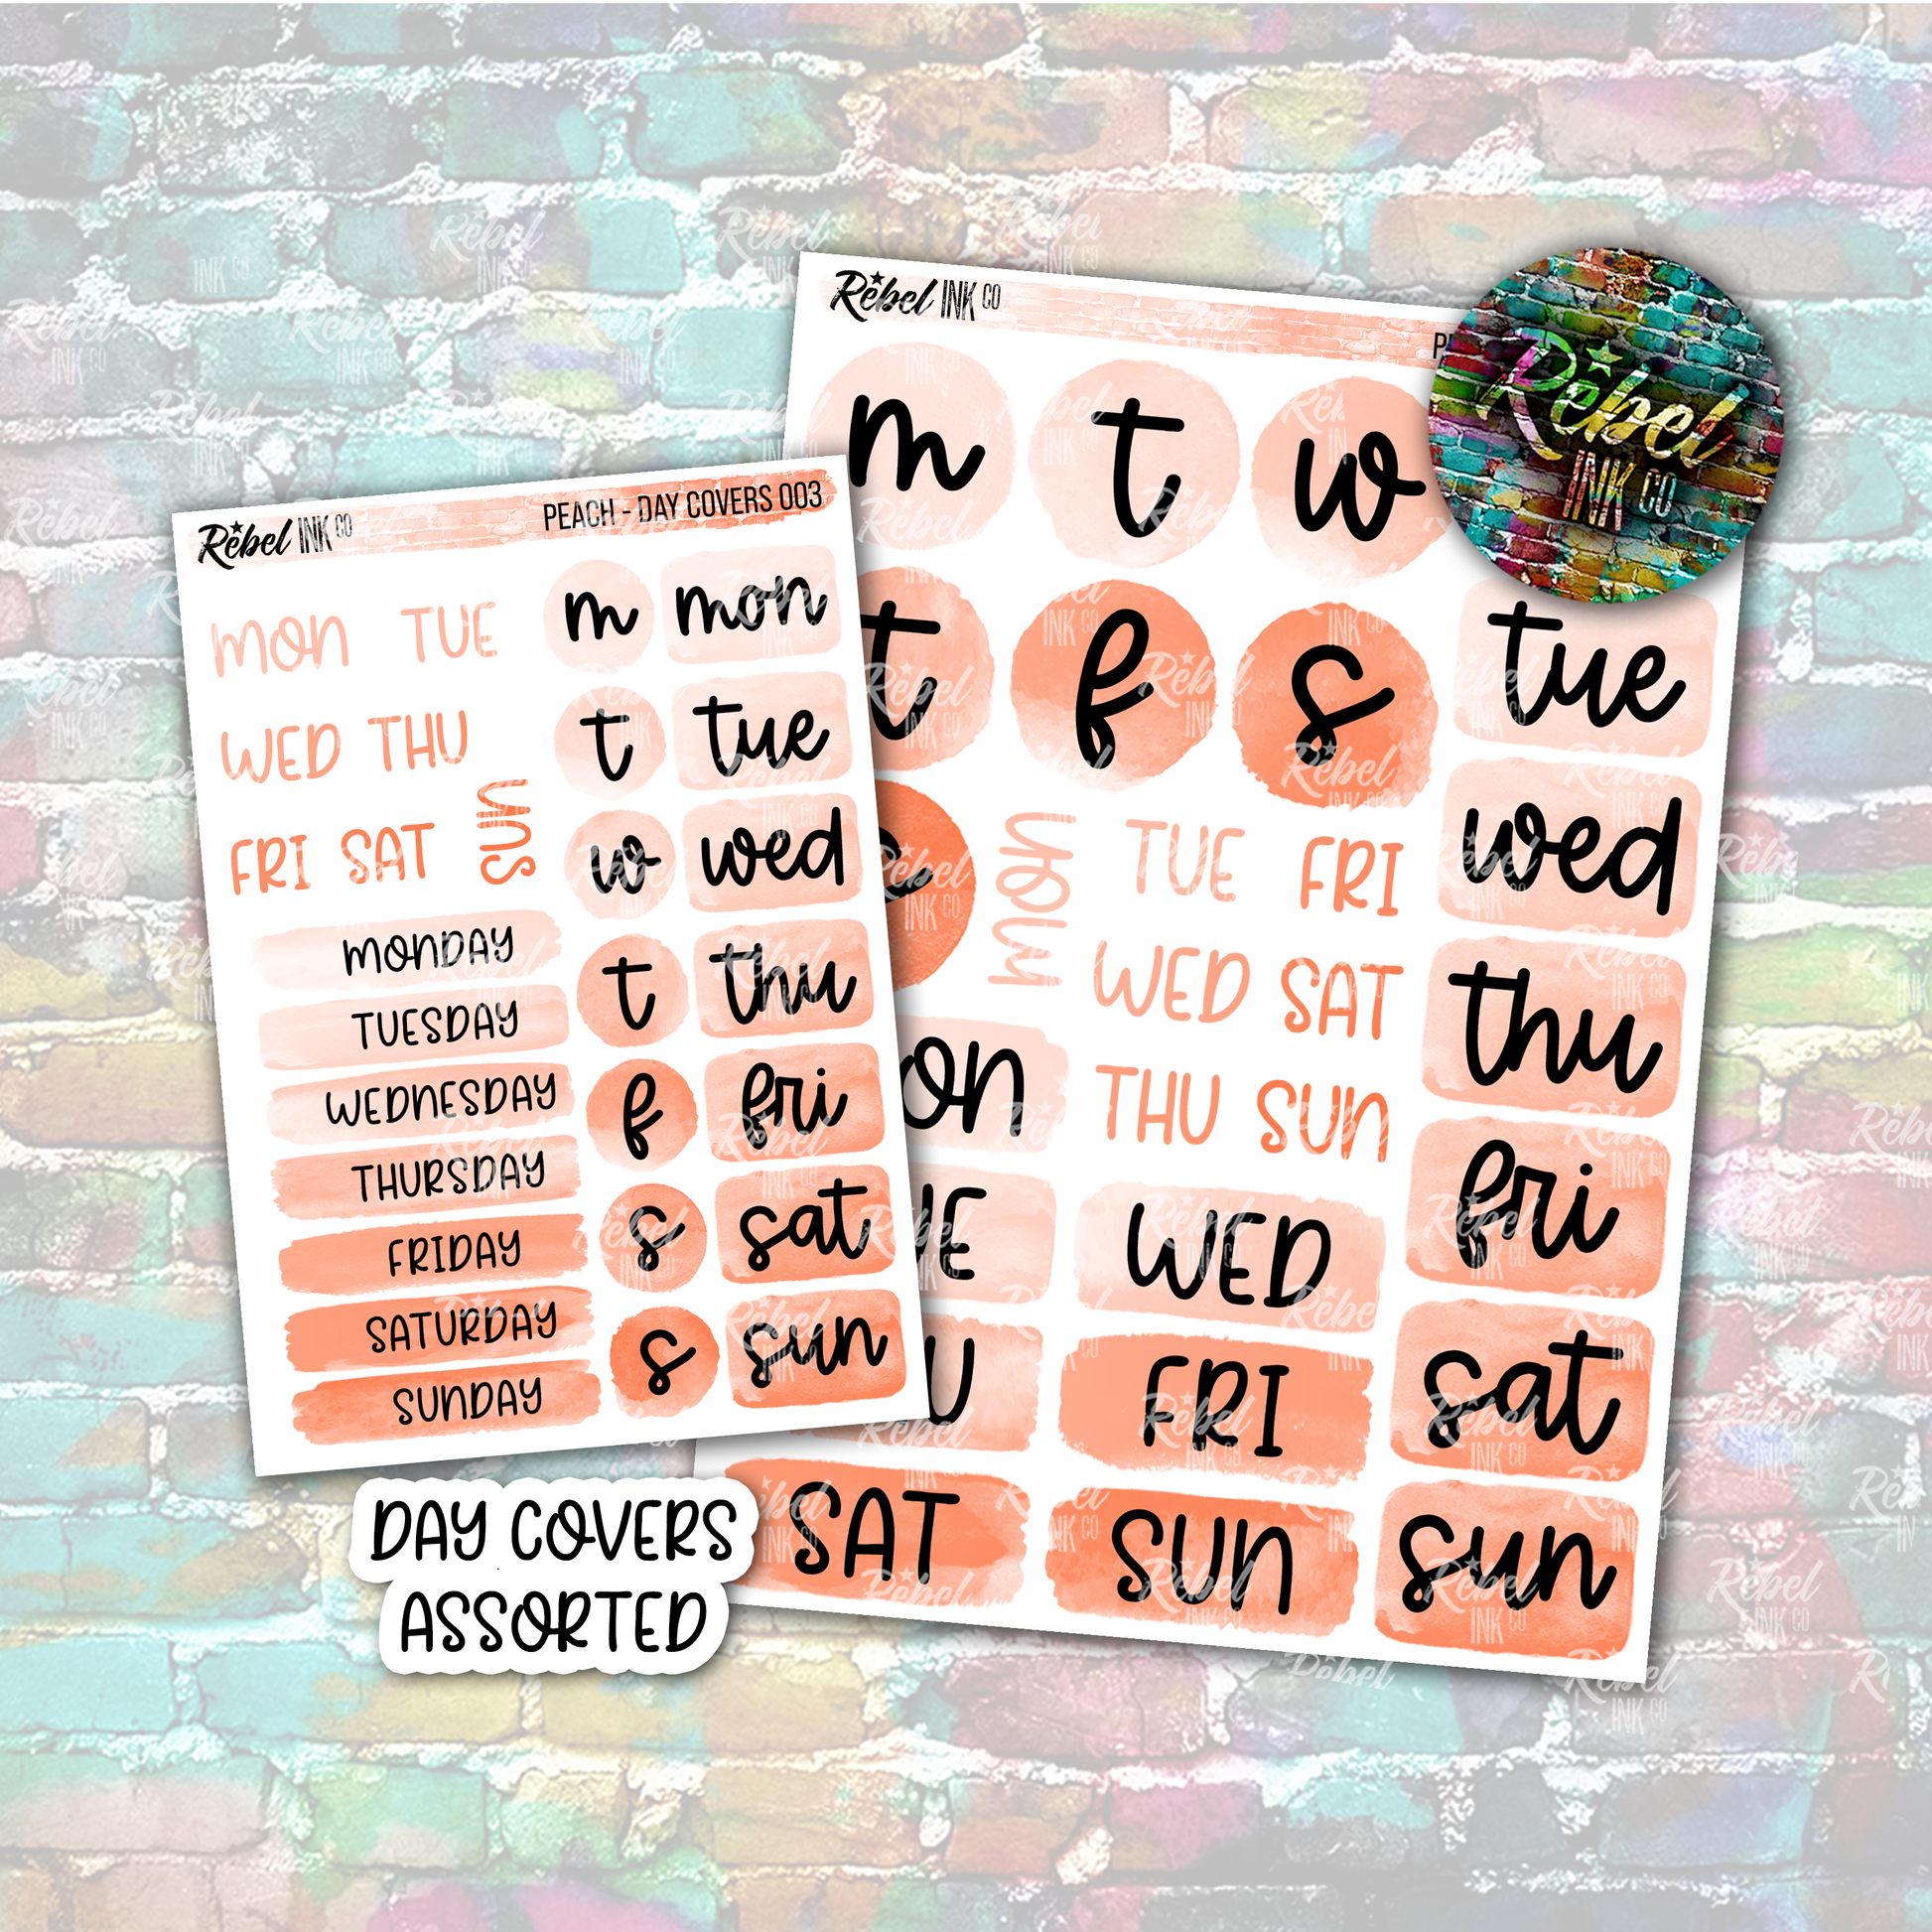 Rebel INK CO
PEACH - DAY COVERS 003
mon TUE
WED THU
FRI SAT
sun
MONDAY
TUESDAY
WEDNESDAY
THURSDAY
FRIDAY
SATURDAY
SUNDAY
m mon
t tue
w wed
t thu
f fri
s sat
s sun
Rebel INK CO
m t w
t f s
mon
TUE FRI
WED SAT
THU SUN
WED
FRI
SAT SUN
tue
wed
thu
fri
sat
sun
Rebel
INK CO
DAY COVERS
ASSORTED